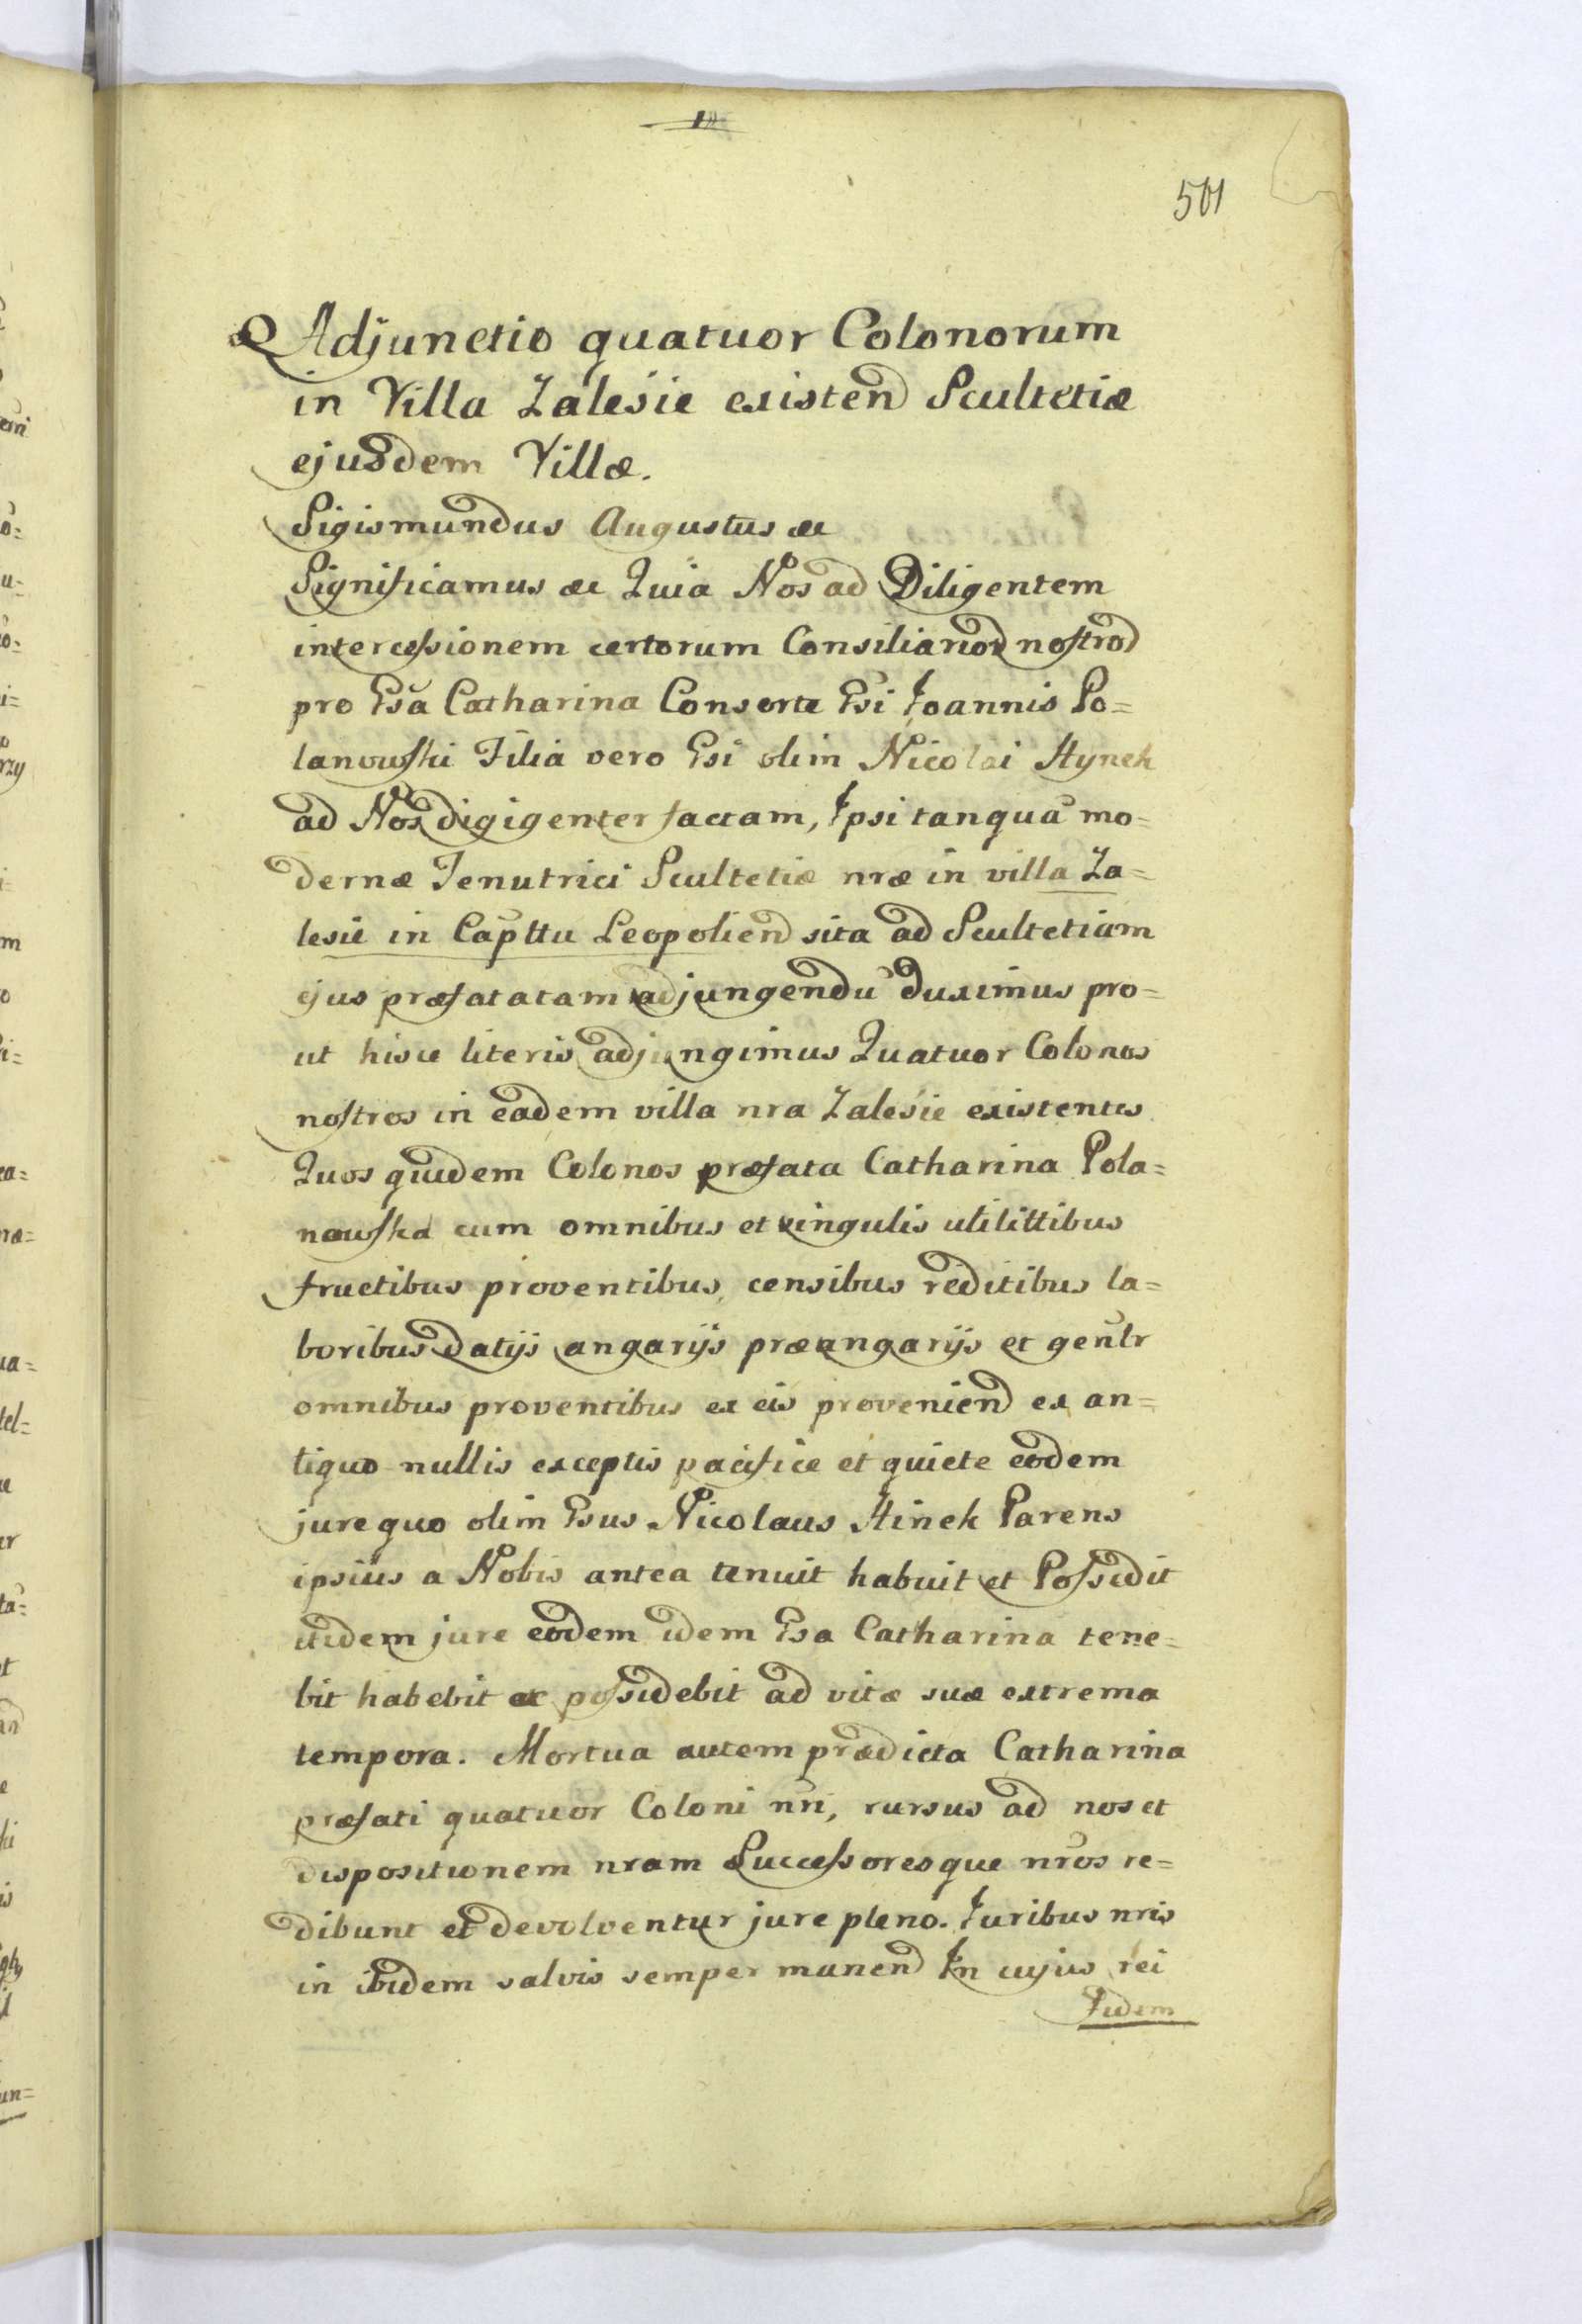 501
Adjunctio quatuor Colonorum
in Villa Zalesie existen Scultetiæ
ejusdem Villæ.
Sigismundus Augustus &c
Significamus &c Quia Nos ad Diligentem
intercessionem certorum Consiliarior nostror
pro Gsa Catharina Consorte Gsi Joannis Po=
lanowski Filia vero Gsi olim Nicolai Hynek
ad Nos digigenter factam, Ipsi tanquā mo=
dernæ Tenutrici Scultetiæ nræ in villa Za=
lesie in Capttu Leopolien sita ad Scultetiam
ejus præfatatam adjungendū duximus pro=
ut hisce literis adjungimus Quatuor Colonos
nostros in eadem villa nra Zalesie existentes
Quos quidem Colonos præfata Catharina Pola=
nowska cum omnibus et singulis utilittibus
fructibus proventibus, censibus reditibus la=
boribus datijs angarijs præangarijs et genlr
omnibus proventibus ex eis provenien ex an=
tiquo nullis exceptis pacifice et quiete eodem
jure quo olim Gsus Nicolaus Hinek Parens
ipsius a Nobis antea tenuit habuit et Possedit
itidem jure eodem idem Gsa Catharina tene=
bit habebit et possidebit ad vitæ suæ extrema
tempora. Mortua autem prædicta Catharina
præfati quatuor Coloni nri, rursus ad nos et
dispositionem nram Successoresque nros re=
dibunt et devolventur jure pleno. Juribus nris
in ibidem salvis semper manen In cujus rei
fidem